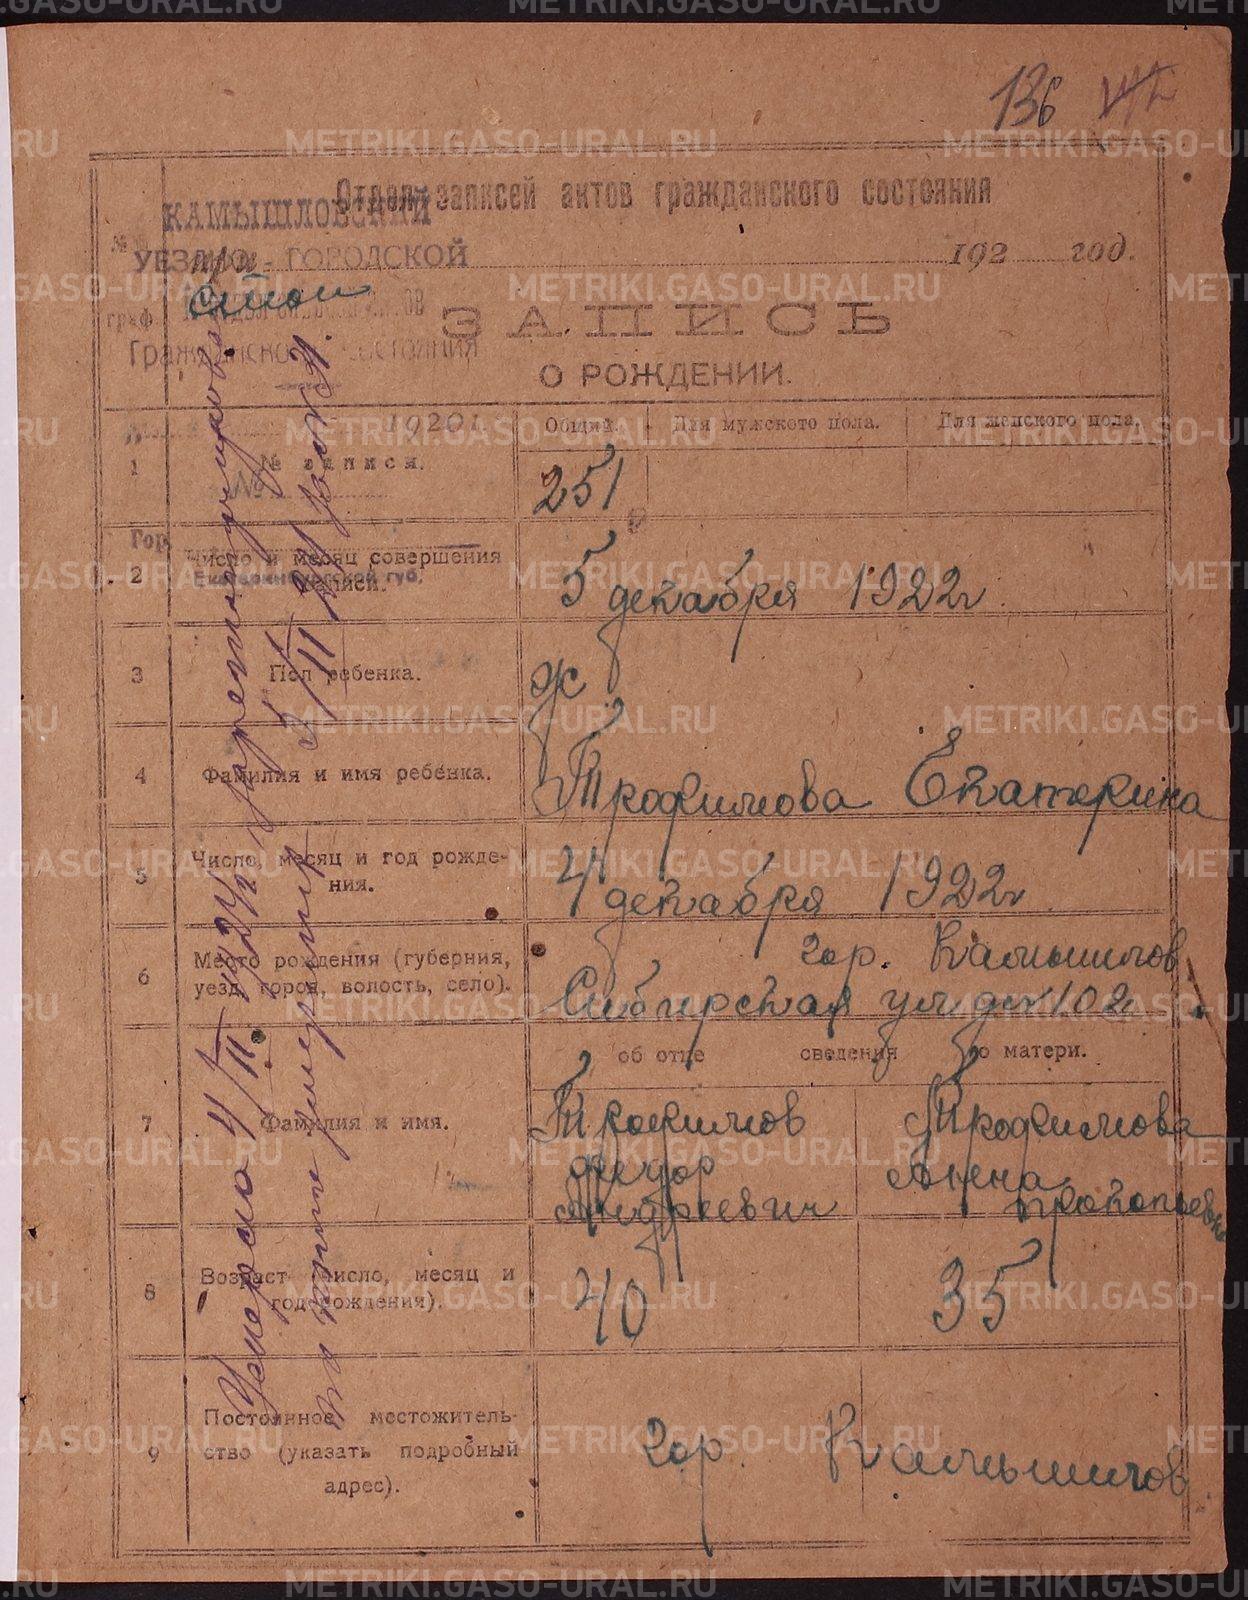 136
Отдел записей актов гражданского состояния
КАМЫШЛОВСКИЙ
УЕЗДНО - ГОРОДСКОЙ
при
192 год.
стол
граф.
ЗАПИСЬ
Гражданского состояния
О РОЖДЕНИИ.
192 г.
Общий. Для мужского пола. Для женского пола.
1 № записи. 251
№
Гор.
2 Число и месяц совершения записи. 5 декабря 1922 г
Екатеринбургской губ.
3 Пол ребенка. ж
4 Фамилия и имя ребенка. Трофимова Екатерина
5 Число, месяц и год рожде-
ния. 4 декабря 1922 г
6 Место рождения (губерния,
уезд, город, волость, село). гор. Камышлов
Сибирская ул д № 102
об отце сведения о матери.
7 Фамилия и имя. Трофимов Федор Андреевич
Трофимова Анна Прокопьевна
8 Возраст (число, месяц и
год рождения). 40 35
9 Постоянное местожитель-
ство (указать подробный
адрес). гор. Камышлов
Умерла 4/II 1924 г зарегистрирована
по книге умерших 5/II 24 г
METRIKI.GASO-URAL.RU